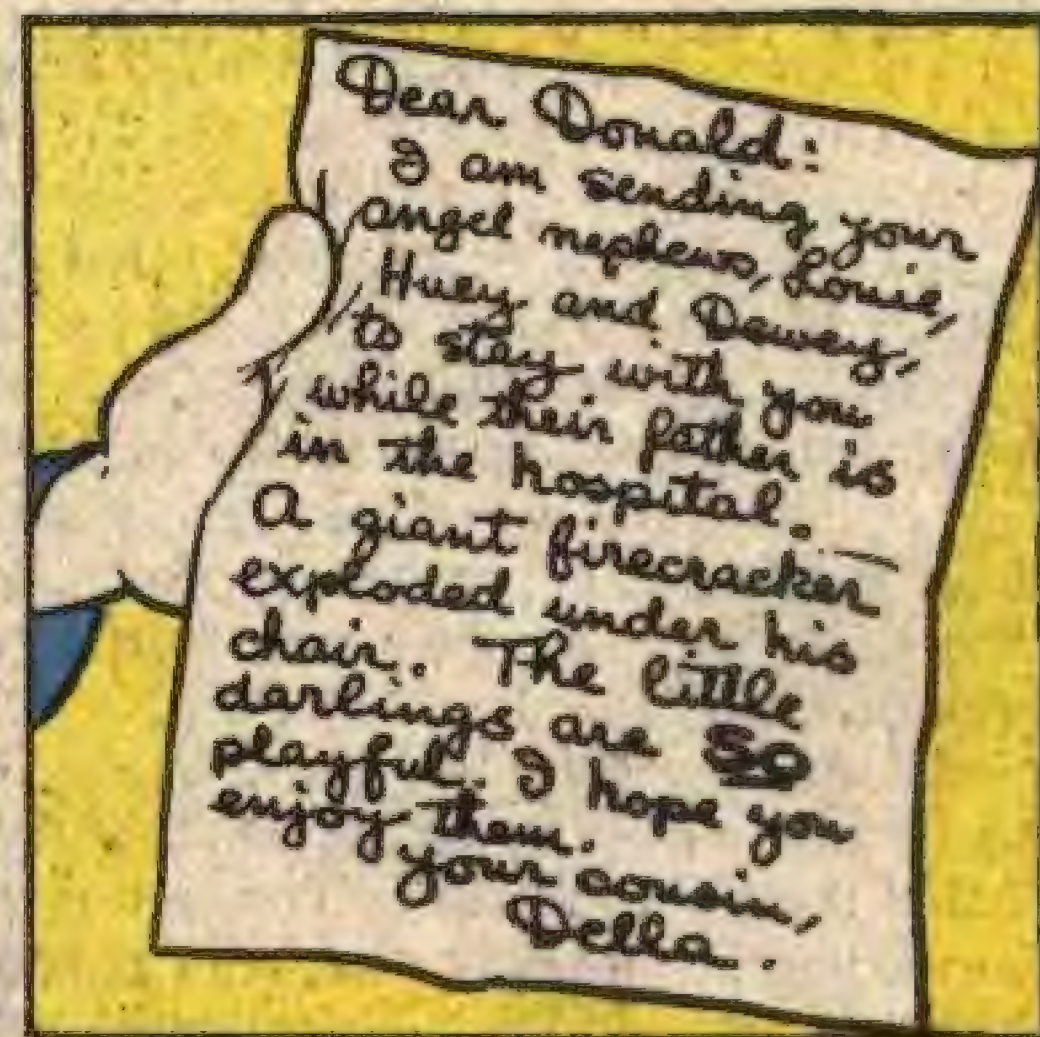 Dear Donald:
I am sending your
angel nephews, Louie,
Huey and Dewey,
to stay with you
while their father is
in the hospital.
A giant firecracker
exploded under his
chair. The little
darlings are so
playful. I hope you
enjoy them.
your cousin,
Della.